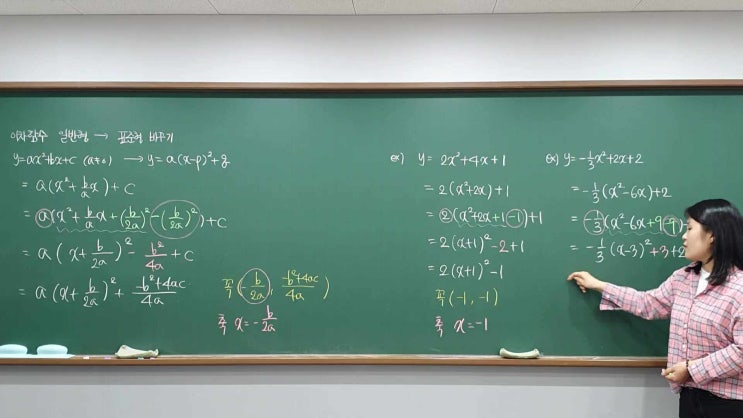 이차함수 일반형 → 표준형 바꾸기
y=ax²+bx+c (a≠0) → y=a(x-p)²+q
= a(x²+b/a x)+c
= a(x²+b/a x+(b/2a)²-(b/2a)²)+c
= a(x+b/2a)²-b²/4a+c
= a(x+b/2a)²+-b²+4ac/4a
꼭(-b/2a, -b²+4ac/4a)
축 x=-b/2a
ex) y= 2x²+4x+1
= 2(x²+2x)+1
= 2(x²+2x+1-1)+1
= 2(x+1)²-2+1
= 2(x+1)²-1
꼭(-1, -1)
축 x=-1
ex) y=-1/3x²+2x+2
=-1/3(x²-6x)+2
=-1/3(x²-6x+9-9)
=-1/3(x-3)²+3+2